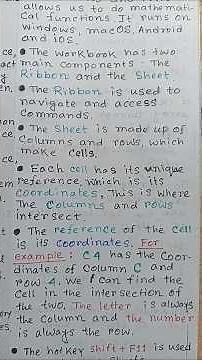 allows us to do mathemati-
cal functions. It runs on
windows, macOS, Android
and iOS
• The workbook has two
main components - The
Ribbon and the Sheet
• The Ribbon is used to
navigate and access
commands.
• The Sheet is made up of
columns and rows, which
make cells.
• Each cell has its unique
reference, which is its
coordinates, This is where
The columns and rows
intersect.
• The reference of the cell
is its coordinates. For
example: C4 has the coor-
dinates of column C and
row 4. We can find the
cell in the intersection of
the two. The letter is always
the column and the number
is always the row.
• The hotkey shift + F11 is used